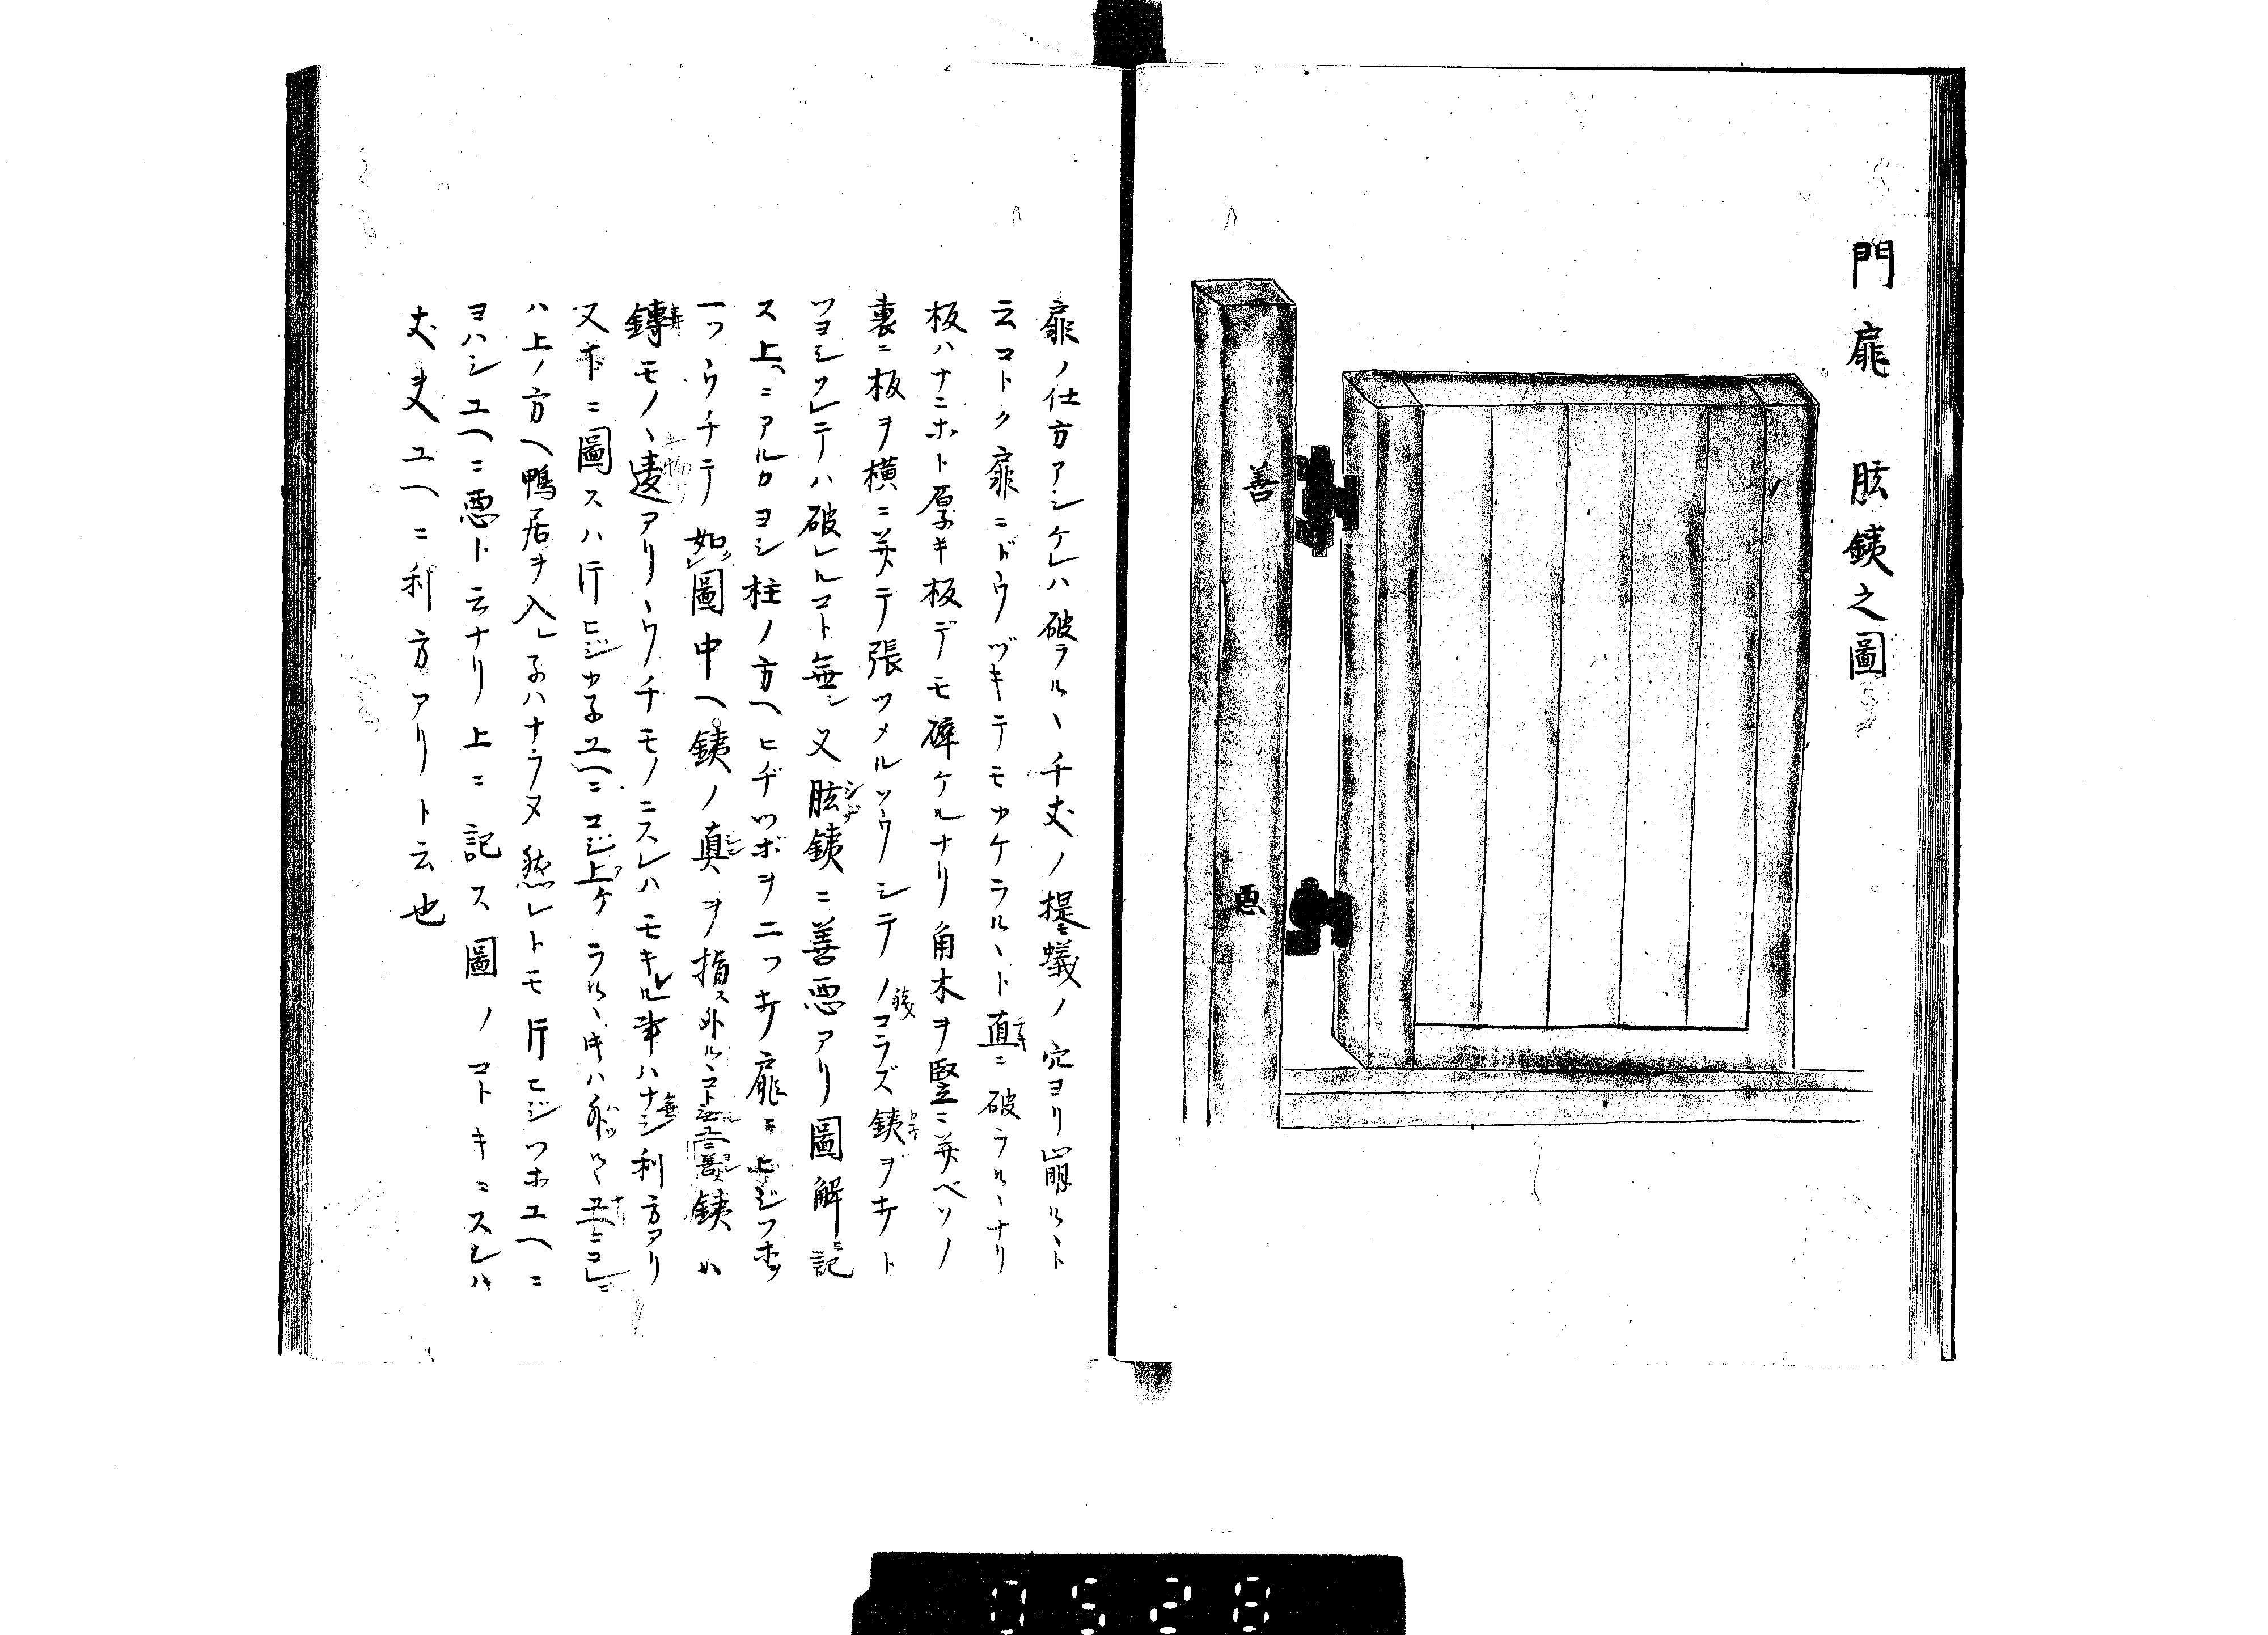 門扉 肱銕之圖
善
悪
扉ノ仕方アシケレハ破ラルヽ千丈ノ堤蟻ノ穴ヨリ崩ルヽト
云コトク扉ニドウヅキテモカケラルヽト直ニ破ラルヽナリ
板ハナニホト厚キ板デモ碎ケルナリ角木ヲ竪ニ並ベソノ
裏ニ板ヲ横ニ並テ張ツメルソウシテノコラズ銕ヲキト
ツヨシソレテハ破レルコト無シ又肱銕ニ善悪アリ圖解記
ス上ニアルカヨシ柱ノ方ヘヒヂツボヲ二ツ 扉ニヒジツホ
一ツウチテ如圖中ヘ銕ノ真ヲ指ス外ルヽコト 善銕ハ
鑄モノヽ違アリウチモノニスレハモキル事ハナシ利方アリ
又下ニ圖スハ片ヒジカネユヘニコジ上ケラルヽ キハ
ハ上ノ方ヘ鴨居ヲ入レネハナラヌ然レトモ片ヒジツホユヘニ
ヨハシユヘニ悪ト云ナリ上ニ記ス圖ノコトキニスレハ
丈夫ユヘニ利方アリト云也
0528